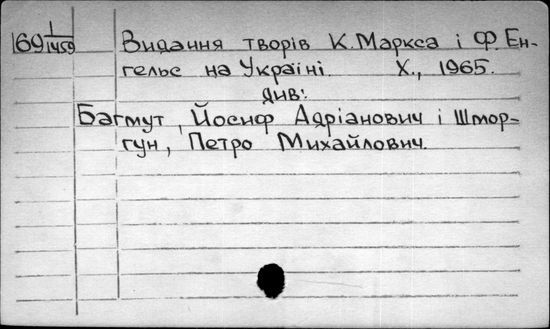 169 1/1459
Видання творів К. Маркса і Ф. Ен-
гельс на Україні. Х., 1965.
див:
Багмут, Йосиф Адріанович і Шмор-
гун, Петро Михайлович.